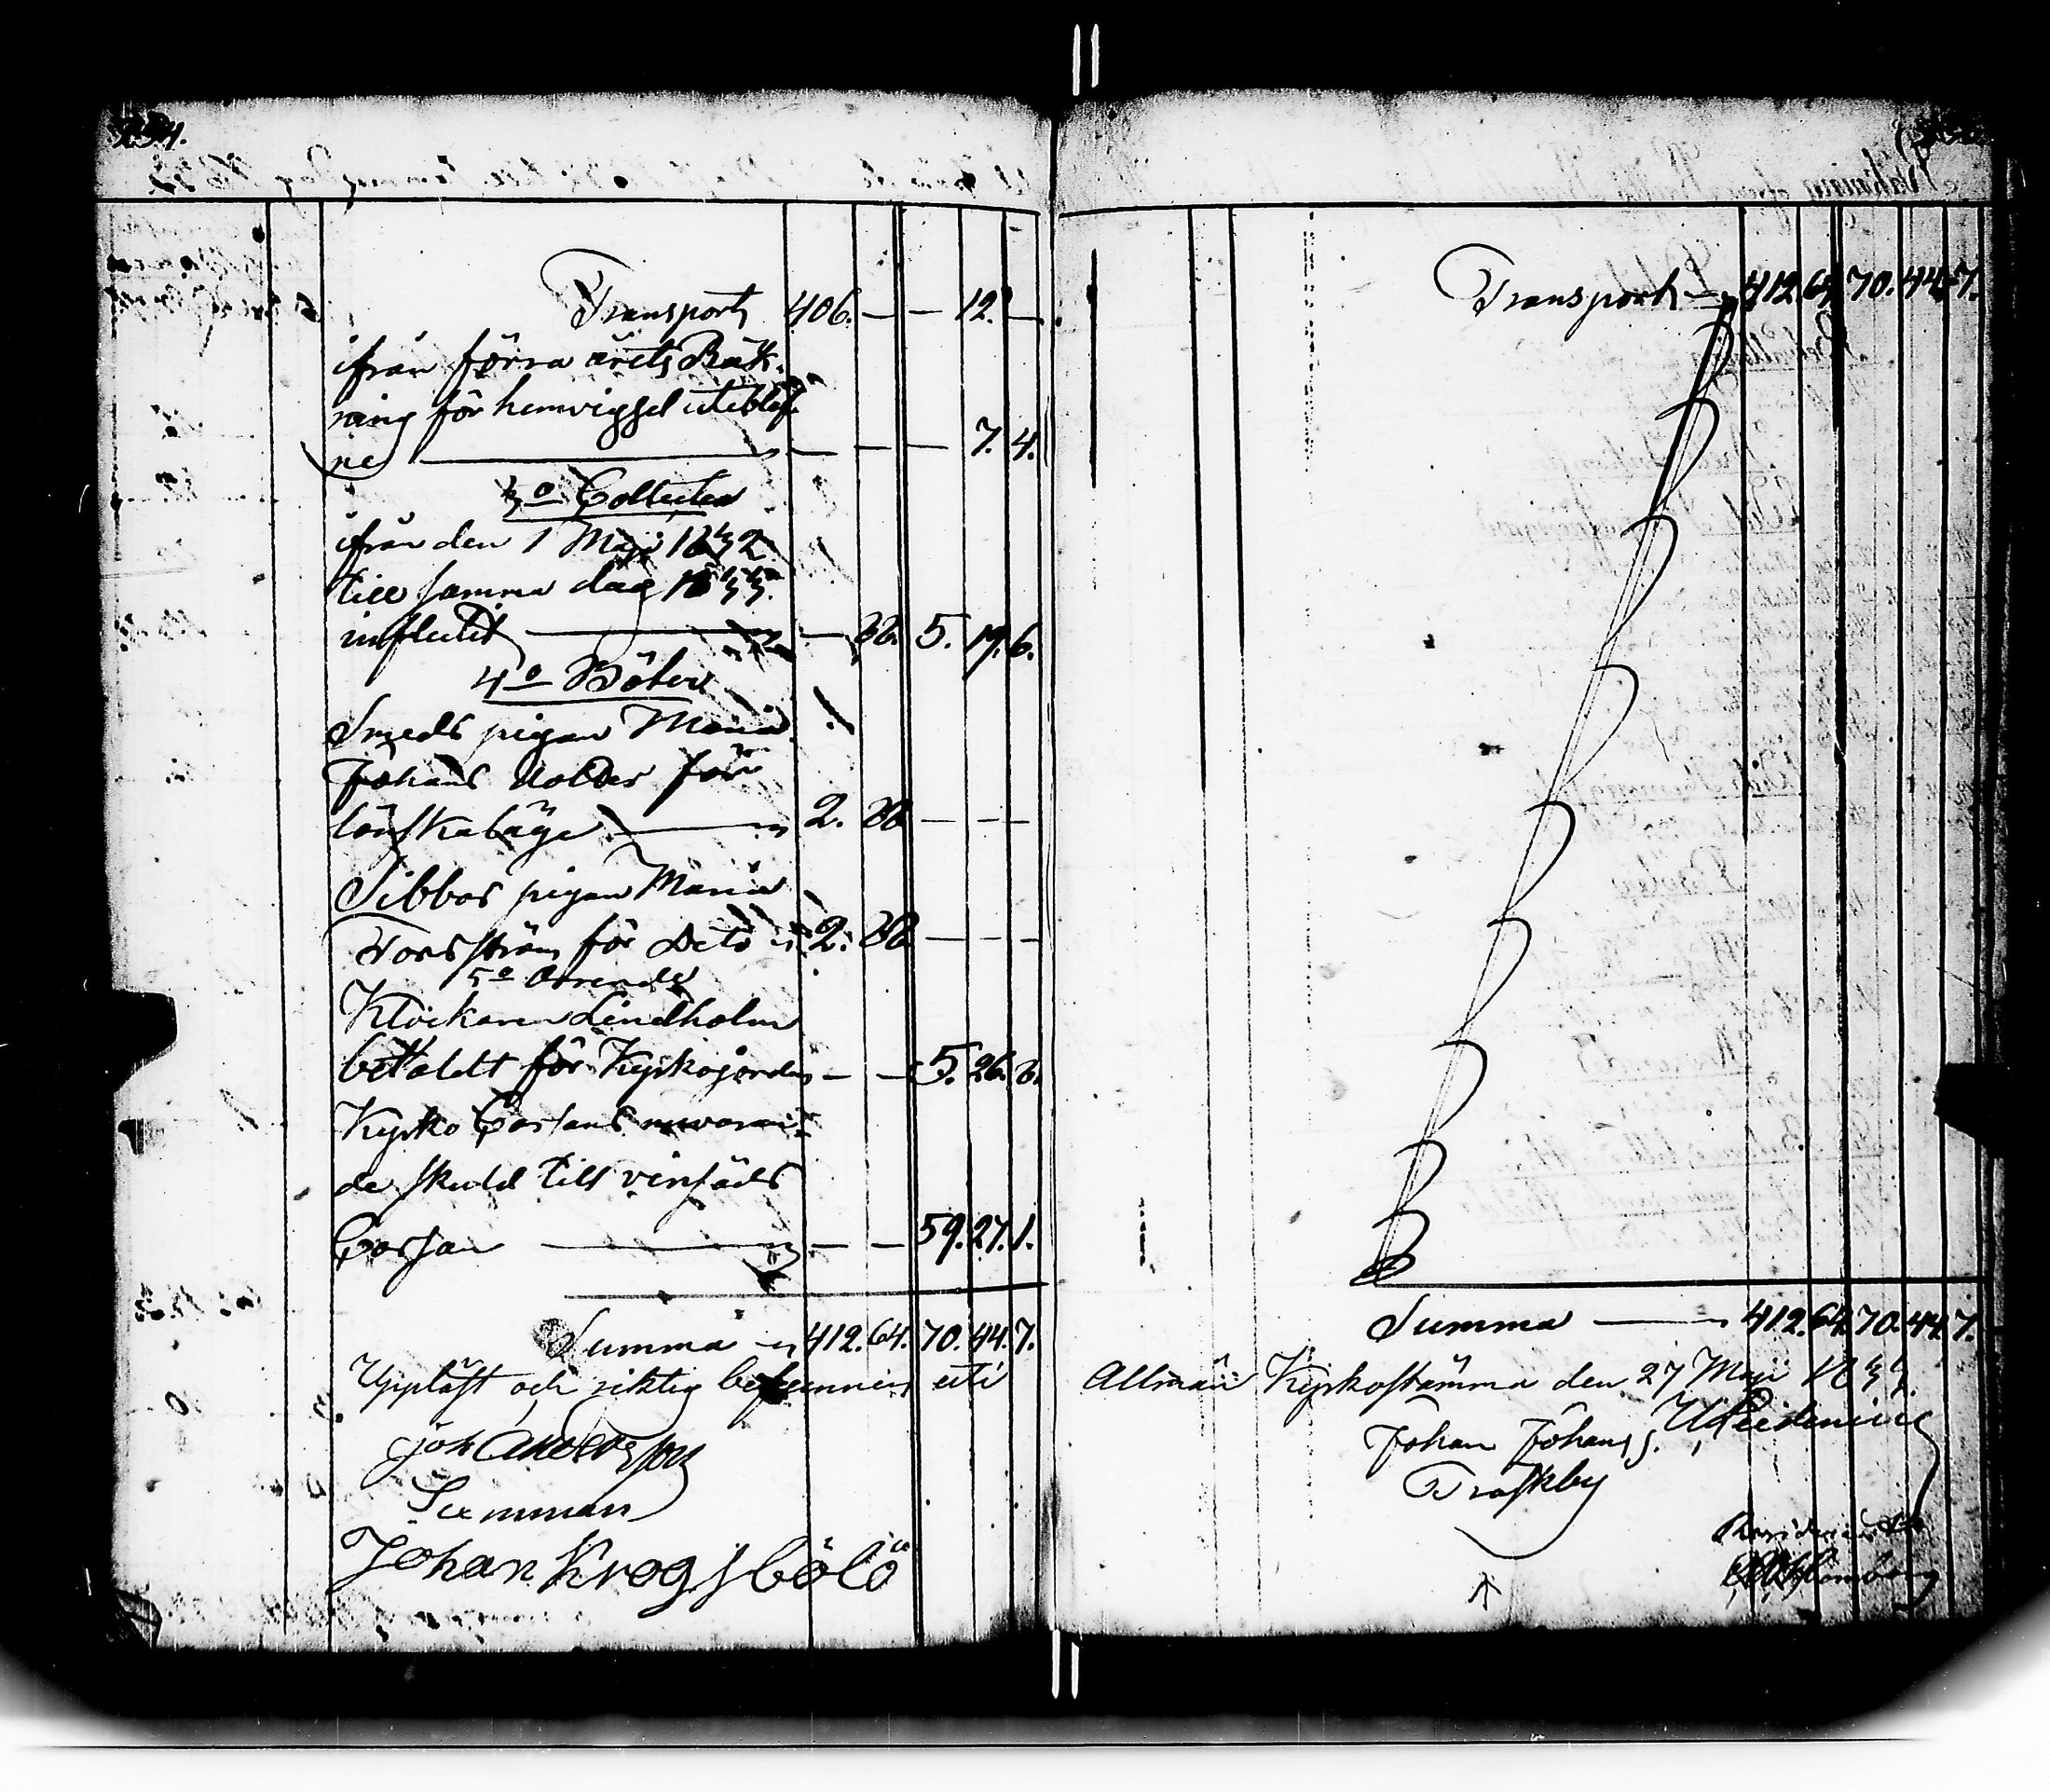 254.
Transport 406. — — 12. —
ifrån förra årets Räk-
ning för hemvigsel uteblef-
ne — — — 7. 4.
3o Collecten
ifrån den 1 Maji 1832
till samma dag 1833.
influtit — 32. 5. 19. 6.
4o Böter
Smeds pigan Maria
Johans dotter för
lönskaläge 2. — — —
Sibbas pigan Maria
Forsström för Dito 2. — — —
5o Arende
Klockaren Lindholm
betaldt för Kyrkojorden — — 5. 26. 8.
Kyrko Cassans nuvaran-
de skuld till vinsäds
Cassan — — 59. 27. 1.
Summa 412. 64. 70. 44. 7.
Uppläst och riktig befunnen uti
Joh Andersson
Summan
Johan Krogsbölö
Transport 412. 64. 70. 44. 7.
Summa 412. 64. 70. 44. 7.
Allmän Kyrkostämma den 27 Maji 1833.
Johan Johans s.
Traskby